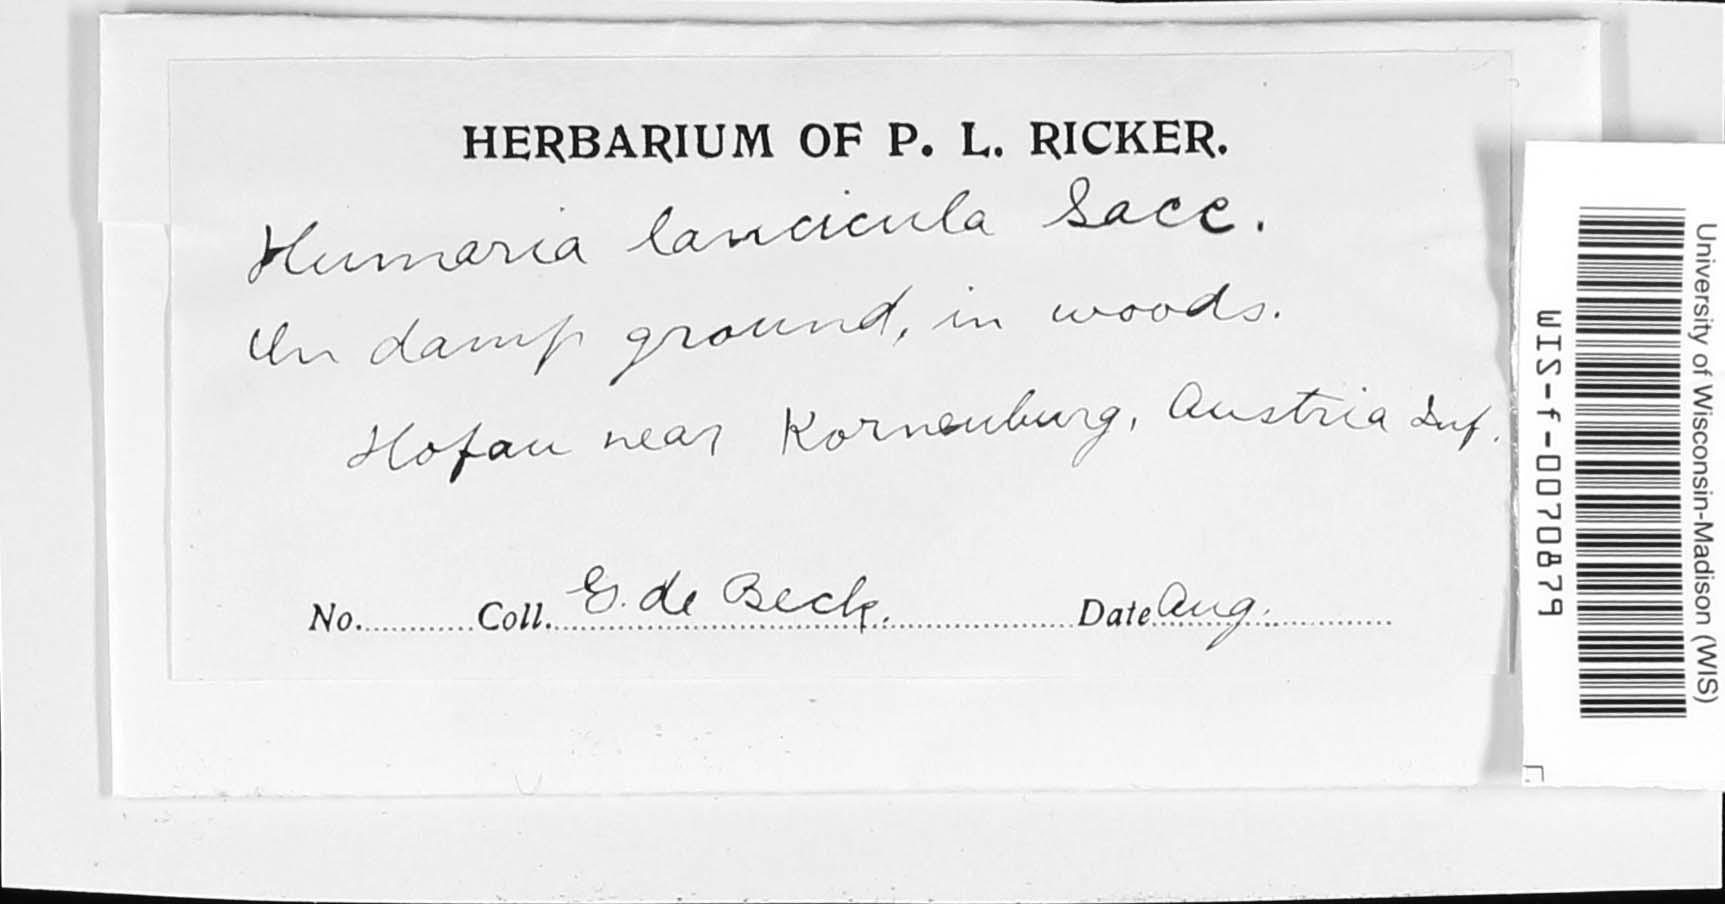 HERBARIUM OF P. L. RICKER.
Humaria lancicula Sacc.
On damp ground, in woods.
Hofau near Korneuburg, Austria Inf.
No. Coll. G. de Beck. Date Aug.
WIS-f-0070879
University of Wisconsin-Madison (WIS)